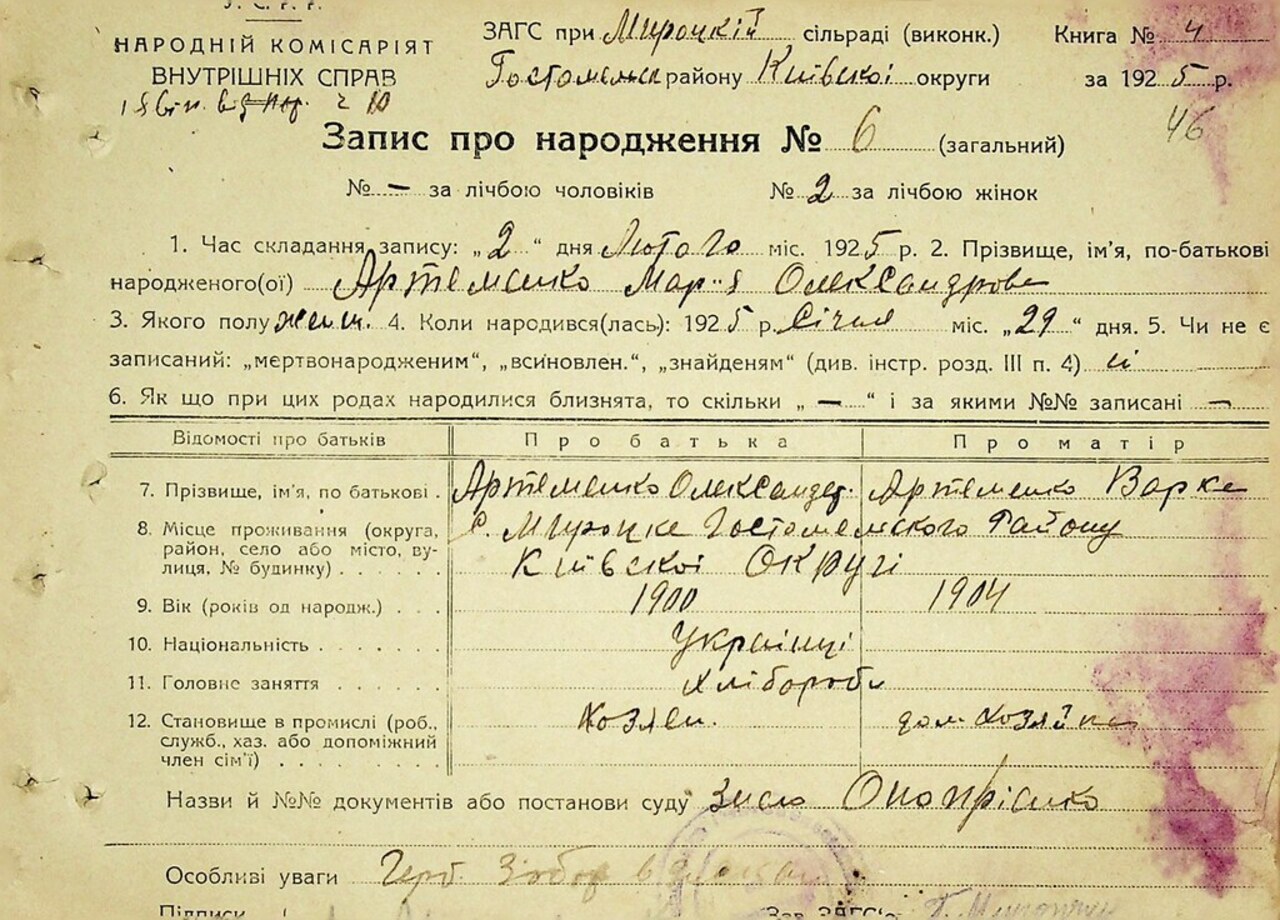 У.С.Р.Р.
НАРОДНІЙ КОМІСАРІЯТ
ВНУТРІШНІХ СПРАВ
ЗАГС при Мироцкій сільраді (виконк.) Книга № 4
Гостоменск району Київскоі округи за 1925 р.
46
Запис про народження № 6 (загальний)
№ — за лічбою чоловіків № 2 за лічбою жінок
1. Час складання запису: „2“ дня Лютого міс. 1925 р. 2. Прізвище, ім'я, по-батькові
народженого(ої) Артеменко Марія Олександровна
3. Якого полу женш. 4. Коли народився(лась): 1925 р. Січня міс. „29“ дня. 5. Чи не є
записаний: „мертвонародженим“, „всиновлен.“, „знайденям“ (див. інстр. розд. III п. 4)
6. Як що при цих родах народилися близнята, то скільки „—“ і за якими №№ записані —
Відомості про батьків Про батька Про матір
7. Прізвище, ім'я, по батькові . Артеменко Олександр. Артеменко Варка
8. Місце проживання (округа, с. Мироцке Гостоменского Району
район, село або місто, ву-
лиця, № будинку) . . . . . . Київскоі Округі
9. Вік (років од народж.) . . . 1900 1904
10. Національність . . . . . . . Українці
11. Головне заняття . . . . . . Хлібороби
12. Становище в промислі (роб., Хозяен. дом. хозяйка
служб., хаз. або допоміжний
член сім'ї) . . . . . . . . .
Назви й №№ документів або постанови суду Онопрієнко
Особливі уваги Герб.
Підписи Зав. ЗАГС'о